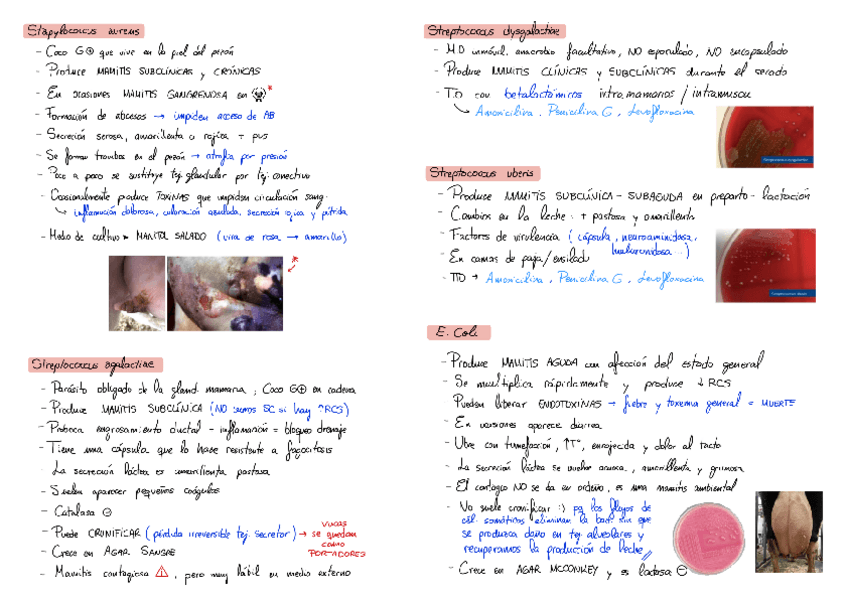 Stapylococcus aureus
- Coco G⊕ que vive en la piel del pezón
- Produce MAMITIS SUBCLÍNICAS y CRÓNICAS
- En ocasiones MAMITIS GANGRENOSA en *
- Formación de abcesos → impiden acceso de AB
- Secreción serosa, amarillenta o rojiza + pus
- Se forman trombos en el pezón → atrofia por presión
- Poco a poco se sustituye tej. glandular por tej. conectivo
- Ocasionalmente produce TOXINAS que impiden circulación sang.
↳ inflamación dolorosa, coloración azulada, secreción rojiza y pútrida
- Medio de cultivo → MANITOL SALADO (vira de rosa → amarillo)
*
Streptococcus agalactiae
- Parásito obligado de la gland. mamaria, Coco G⊕ en cadena
- Produce MAMITIS SUBCLÍNICA (NO somos SC si hay ↑RCS)
- Provoca engrosamiento ductal - inflamación = bloqueo drenaje
- Tiene una cápsula que lo hace resistente a fagocitosis
- La secreción láctea es amarillenta pastosa
- Suelen aparecer pequeños coágulos
- Catalasa ⊖
- Puede CRONIFICAR (pérdida irreversible tej. secretor) → VACAS se quedan como PORTADORES
- Crece en AGAR SANGRE
- Mamitis contagiosa ⚠, pero muy lábil en medio externo
Streptococcus dysgalactiae
- M.O inmóvil, anaerobio facultativo, NO esporulado, NO encapsulado
- Produce MAMITIS CLÍNICAS y SUBCLÍNICAS durante el secado
- TTO con betalactámicos intramamarios / intramuscu
↳ Amoxicilina, Penicilina G, Levofloxacina
Streptococcus uberis
- Produce MAMITIS SUBCLÍNICA - SUBAGUDA en preparto - lactación
- Cambios en la leche: + pastosa y amarillenta
- Factores de virulencia (cápsula, neuroaminidasa,
hialuronidasa...)
- En camas de paja/ensilado
- TTO → Amoxicilina, Penicilina G, Levofloxacina
E. Coli
- Produce MAMITIS AGUDA con afección del estado general
- Se multiplica rápidamente y produce ↓RCS
- Pueden liberar ENDOTOXINAS → fiebre y toxemia general = MUERTE
- En ocasiones aparece diarrea
- Ubre con tumefacción, ↑Tª, enrojecida y dolor al tacto
- La secreción láctea se vuelve acuosa, amarillenta y grumosa
- El contagio NO se da en ordeño, es una mamitis ambiental
- No suele cronificar :) pq los flujos de
cél. somáticas eliminan la bact. sin que
se produzca daño en tej. alveolares y
recuperamos la producción de leche
- Crece en AGAR MCCONKEY y es lactosa ⊖